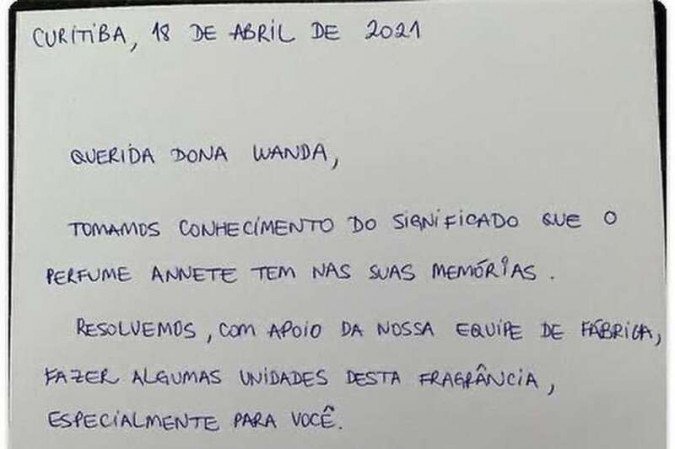 CURITIBA, 18 DE ABRIL DE 2021
QUERIDA DONA WANDA,
TOMAMOS CONHECIMENTO DO SIGNIFICADO QUE O
PERFUME ANNETE TEM NAS SUAS MEMÓRIAS.
RESOLVEMOS, COM APOIO DA NOSSA EQUIPE DE FÁBRICA,
FAZER ALGUMAS UNIDADES DESTA FRAGRÂNCIA,
ESPECIALMENTE PARA VOCÊ.